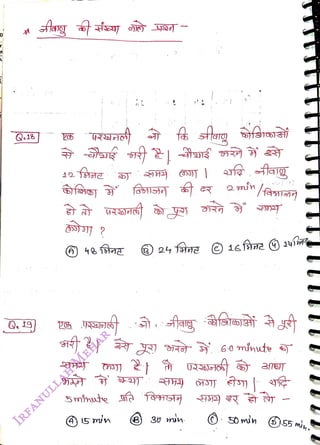 * जीवाणु की संख्या वाले प्रश्न -
Q.18 एक परखनली जो कि जीवाणु कोशिकाओं
से चौथाई भरी है। चौथाई भरने में इसे
12 मिनट का समय लगा। यदि जीवाणु
कोशिका में विभाजन की दर 2 min/विभाजन
हो तो परखनली को पूरा भरने में समय
लगेगा ?
(A) 48 मिनट (B) 24 मिनट (C) 16 मिनट (D) 14 मिनट
Q.19) एक परखनली जो जीवाणु कोशिकाओं से पूरी
भरी है। इसे पूरा भरने में 60 minute का
समय लगा है। तो परखनली को आधा
भरने में क्या समय लगा होगा। यदि
5 minute प्रति विभाजन समय दर हो तो -
(A) 15 min (B) 30 min. (C) 50 min (D) 55 min.
IRFANULLAH MEHAR